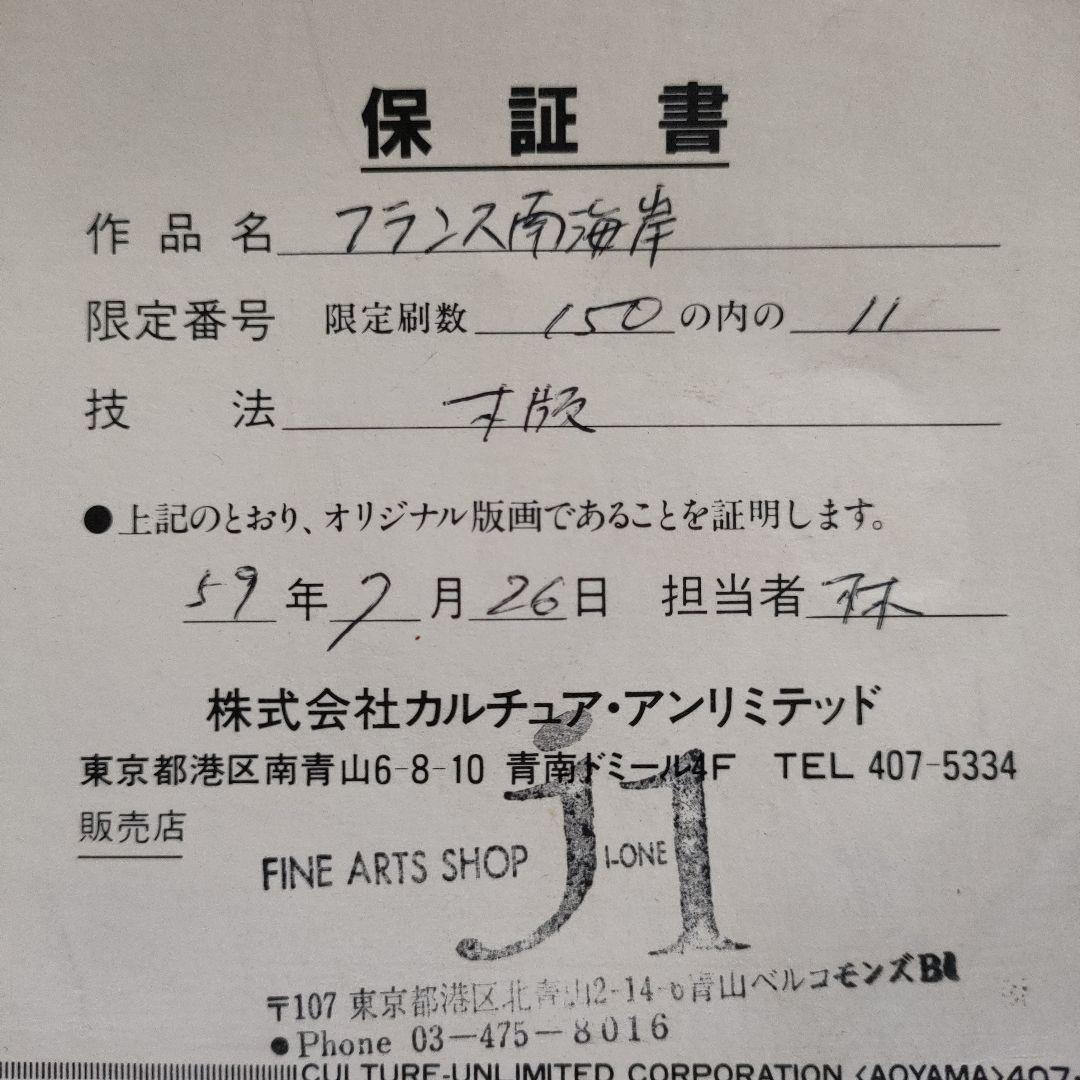 保証書
作品名 フランス南海岸
限定番号 限定刷数 150 の内の 11
技法 木版
●上記のとおり、オリジナル版画であることを証明します。
59年7月26日 担当者 林
株式会社カルチュア・アンリミテッド
東京都港区南青山6-8-10 青南ドミール4F TEL 407-5334
販売店
FINE ARTS SHOP j1 I-ONE
〒107 東京都港区北青山2-14-6青山ベルコモンズB1
●Phone 03-475-8016
CULTURE-UNLIMITED CORPORATION <AOYAMA>407-